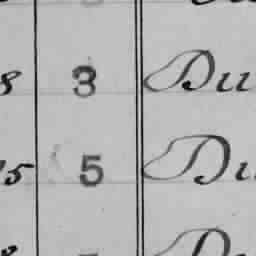 8 3 Du
15 5 Du